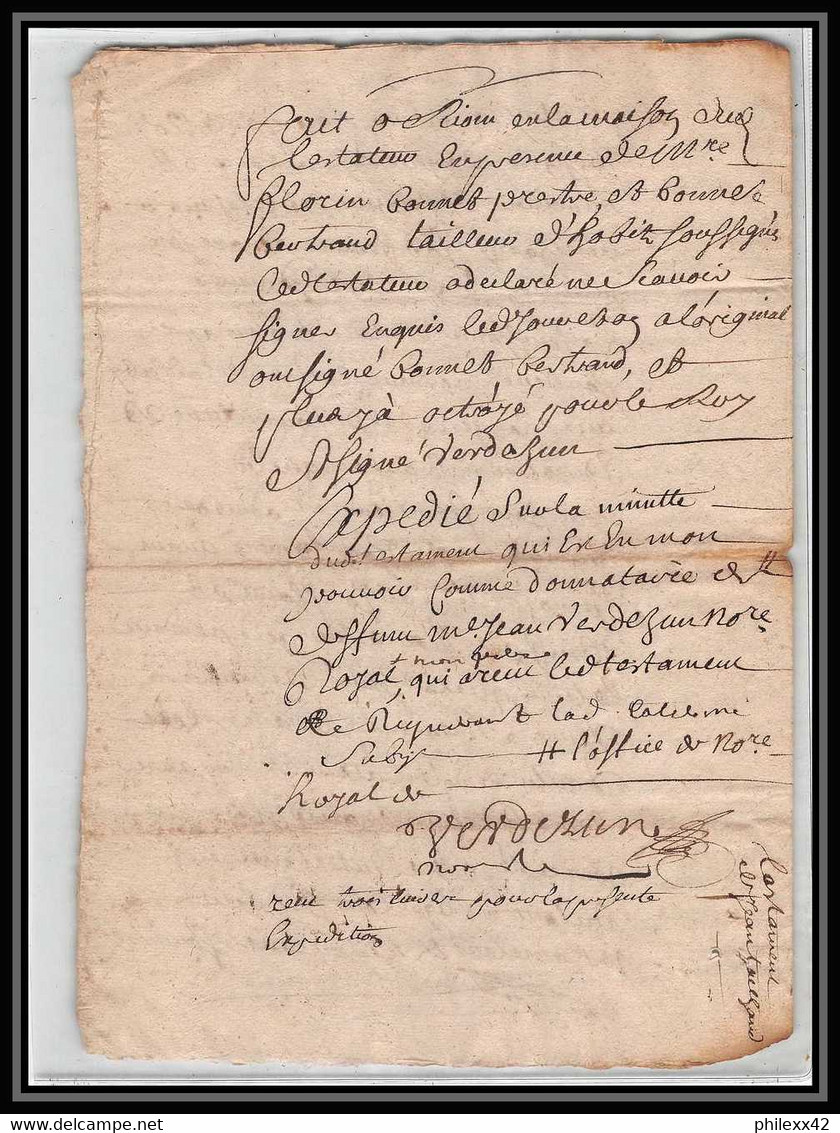 fait a Riom en la maison dud
testateur En presence de Mre
florin bonnet prestre, et bonnet
bertrand tailleur d'habitz soussignés
Led testateur a declaré ne scavoir
signer Enquis led jour a l'original
ont signé bonnet bertrand, et
octroyé pour le Roy
Et signé Verdezun
Expedié Sur la minutte
dud testament qui Est En mon
pouvoir Comme donnataire de #
deffunt me Jean Verdezun Nore
+ mon pere
Royal, qui a receu led testament
Ce Requerant lad
# l'office de Nore
Royal de
Verdezun
receu trois livres pour la presente
Expedition
testament
de Jean
philexx42